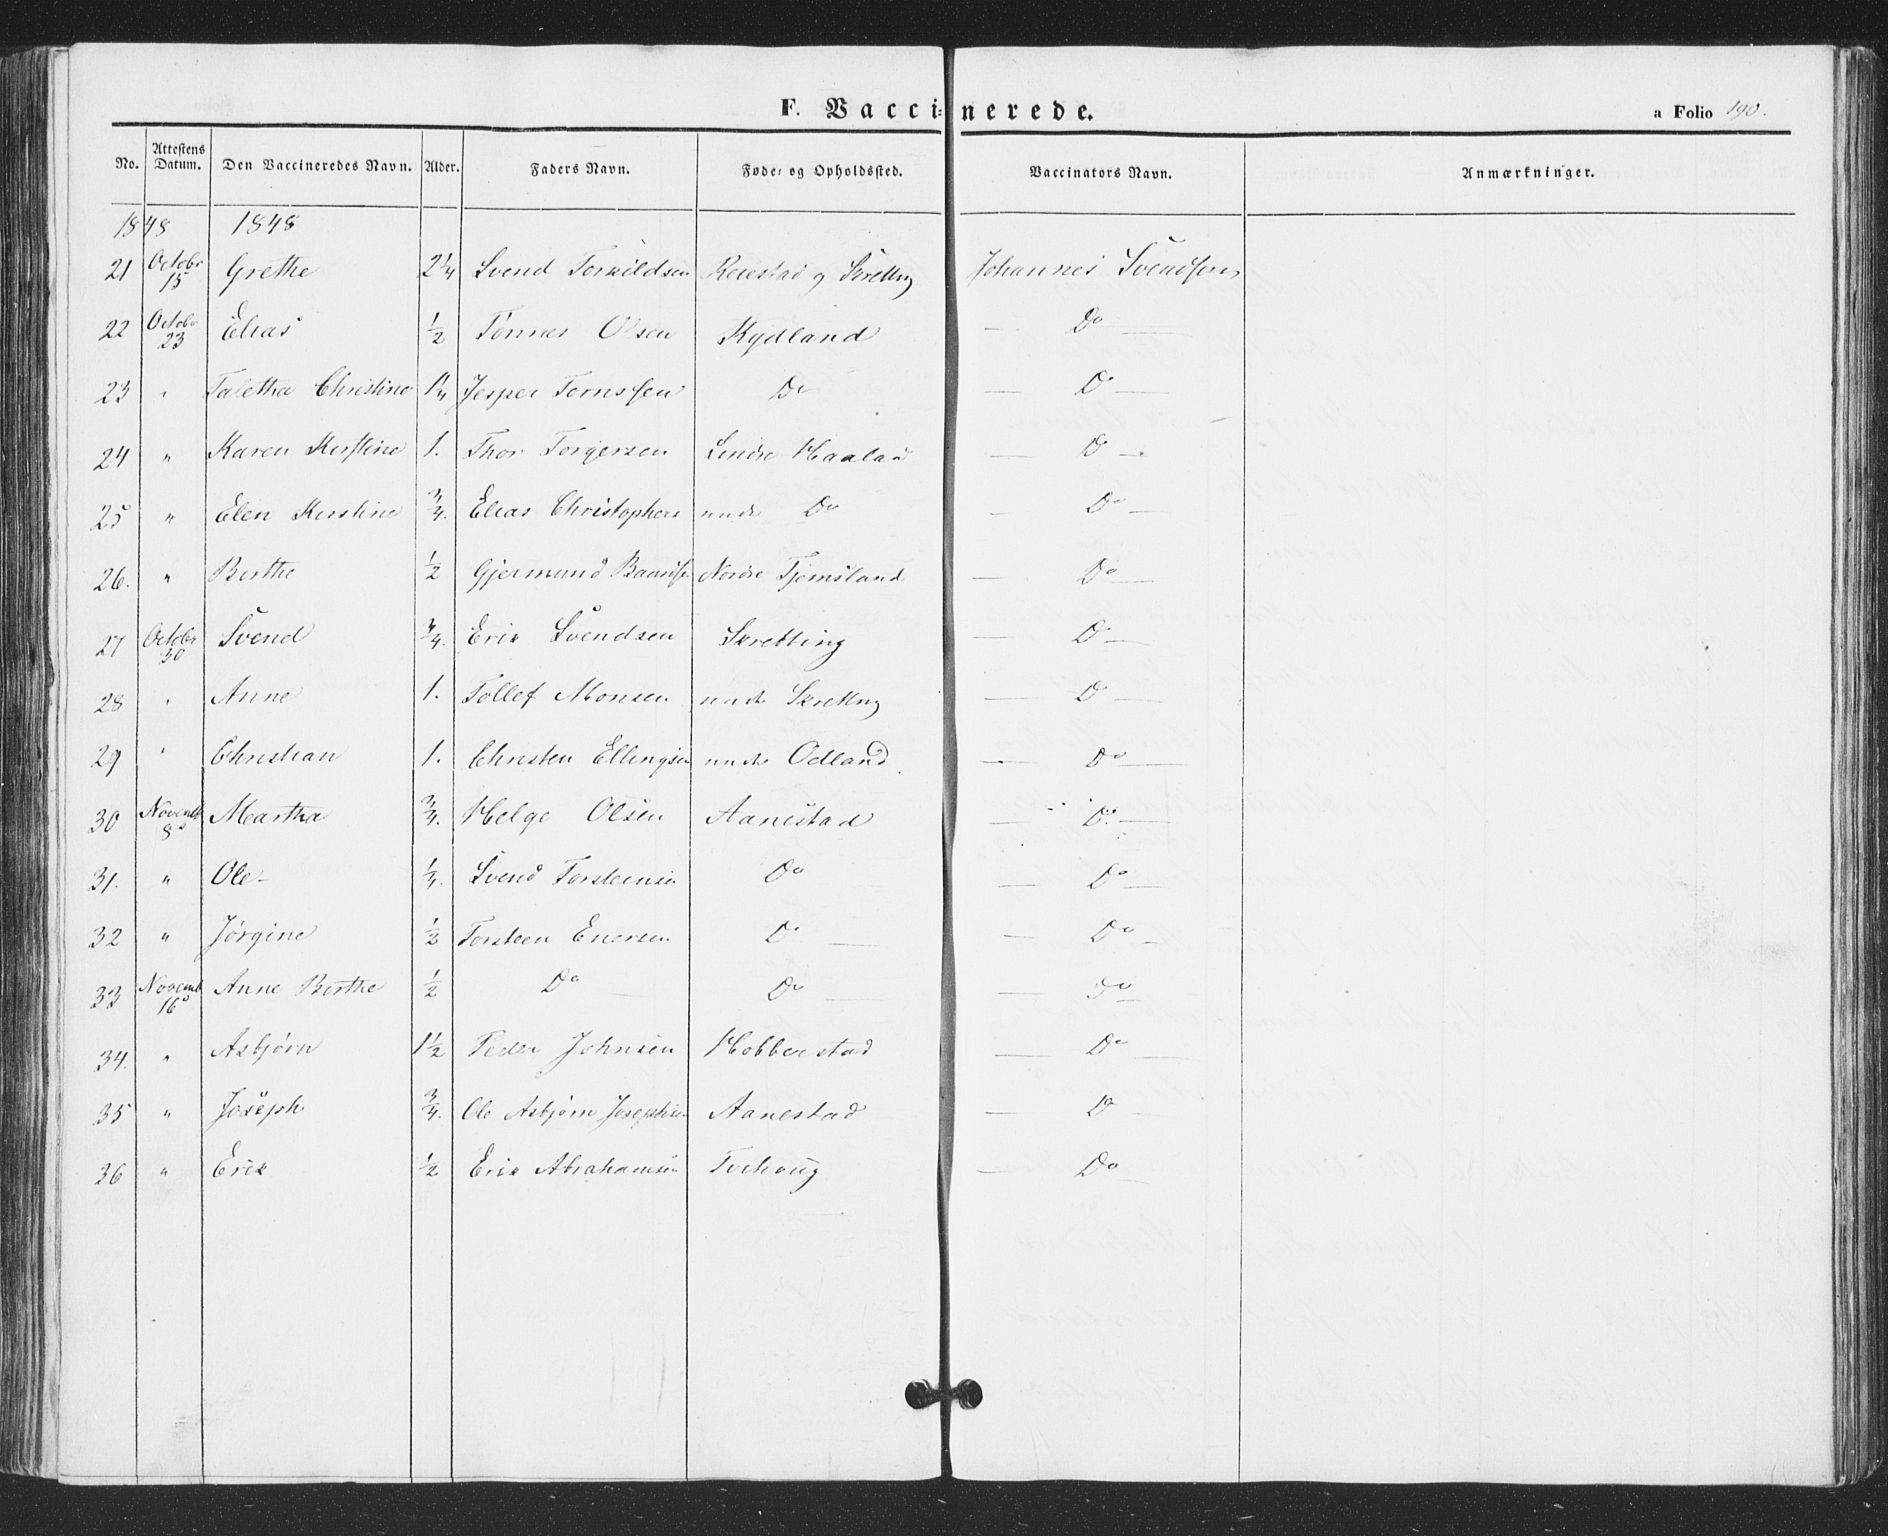 F. Vaccinerede.
a Folio 190.
No. Attestens Datum. Den Vaccineredes Navn. Alder. Faders Navn. Føde- og Opholdssted. Vaccinators Navn. Anmærkninger.
1848 1848
21 Octobr 15 Grethe 2 1/4 Svend Torkildsen Reiestad og Skretting Johannes Svendsen
22 Octobr 23 Elias 1/2 Tønnes Olsen Kydland — Do —
23 " Taletha Christine 1 1/4 Jesper Tornssen Do — Do —
24 " Karen Kirstine 1. Thor Torgersen Søndre Haaland — Do —
25 " Elen Kirstine 3/4. Elias Christophers unde Do — Do —
26. " Birthe 1/2 Gjermund Baards Nordre Tjemsland — Do —
27 Octobr 30 Svend 3/4. Erik Svendsen Skretting — Do —
28 " Anne 1. Tollef Monsen unde Skretting — Do —
29 " Christian 1. Christen Ellingsen unde Odland — Do —
30 Novemb 8 Martha 3/4. Helge Olsen Aanestad — Do —
31. " Ole 1/4. Svend Torsteinsen Do — Do —
32 " Jørgine 1/2 Torsteen Enersen Do — — Do —
33 Novemb 16 Anne Birthe 1/2 Do — Do — — Do —
34. " Asbjørn 1 1/2 Peder Johnsen Hobberstad — Do —
35 " Joseph 3/4. Ole Asbjørn Josephsen Aanestad — Do —
36 " Erik 1/2 Erik Abrahamsen Tvihoug — Do —